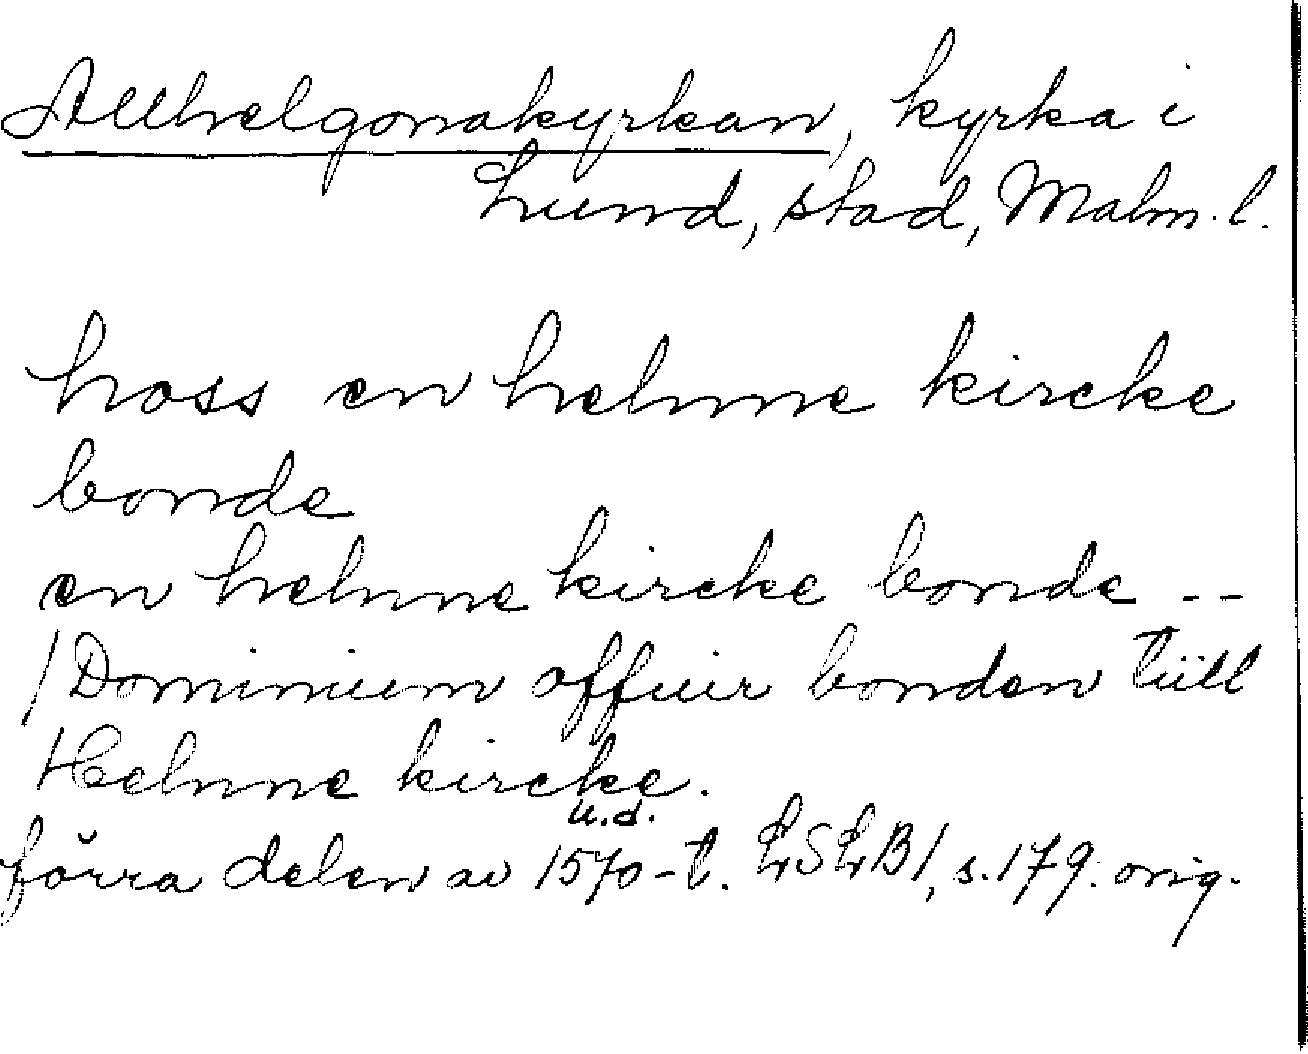 Allhelgonakyrkan, kyrka i
Lund, stad, Malm. l.
hoss en helnne kircke
bonde
en helnne kircke bonde --
/Dominium offuir bonden tiill
Helnne kircke.
u.d.
förra delen av 1570-t. LSLB1, s. 179. orig.